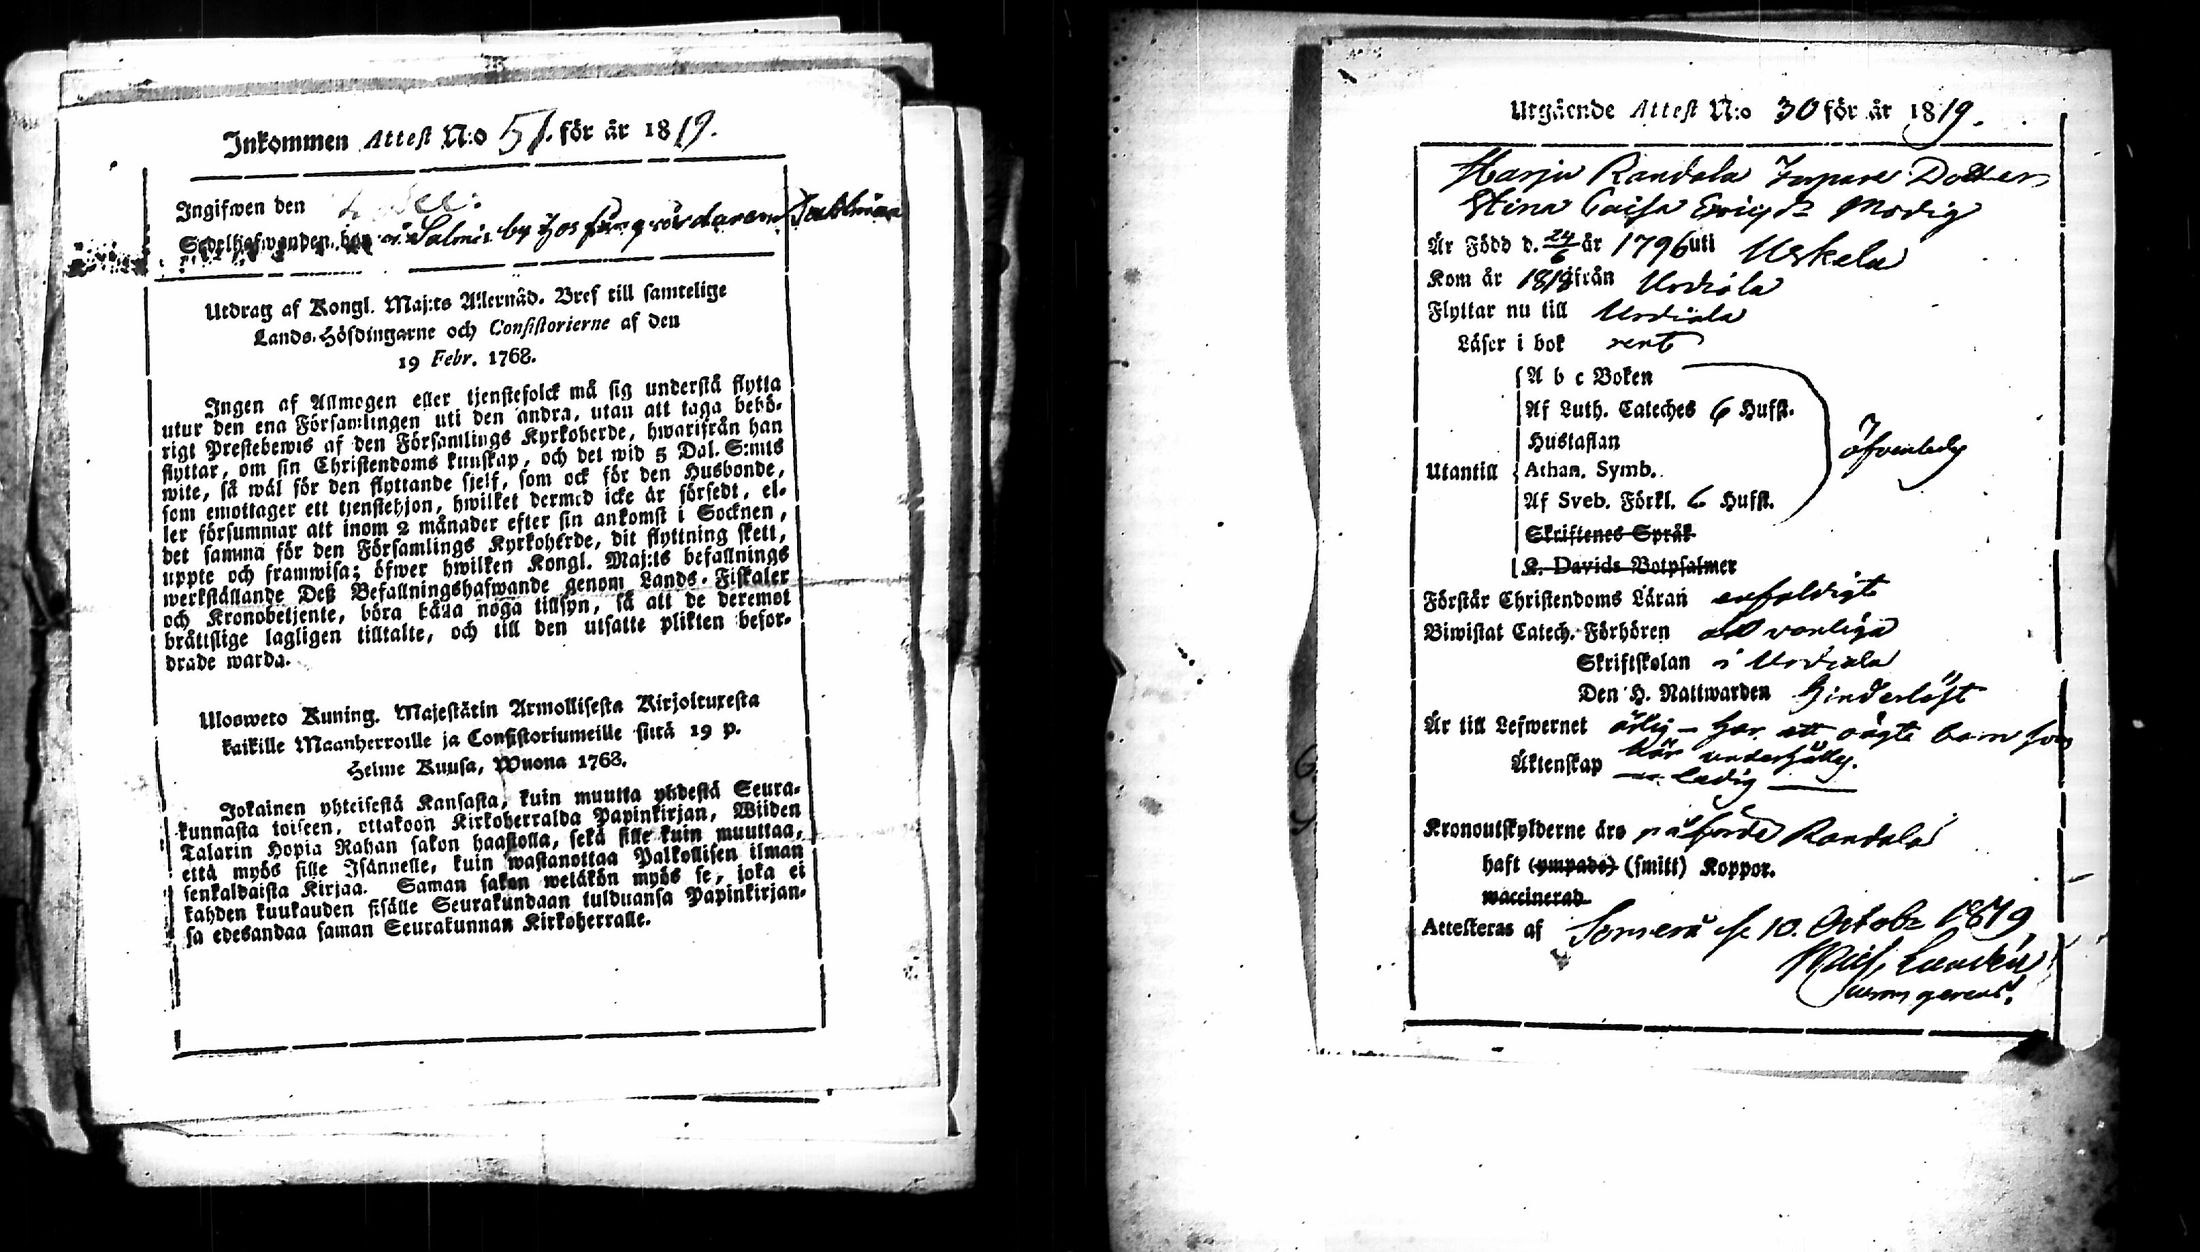 Inkommen Attest N:o 51. för år 1819.
Ingifwen den
Sedelhafwanden bor i Salmis by hos
Utdrag af Kongl. Maj:ts Allernåd. Bref till samtelige
Lands-Höfdingarne och Consistorierne af den
19 Febr. 1768.
Ingen af Allmogen eller tjenstefolck må sig understå flytta
utur den ena Församlingen uti den andra, utan att taga behö-
rigt Prestebewis af den Församlings Kyrkoherde, hwarifrån han
flyttar, om sin Christendoms kunskap, och det wid 5 Dal. S:mts
wite, så wäl för den flyttande sjelf, som ock för den Husbonde,
som emottager ett tjenstehjon, hwilket dermed icke är försedt, el-
ler försummar att inom 2 månader efter sin ankomst i Socknen,
det samma för den Församlings Kyrkoherde, dit flyttning skett,
uppte och framwisa; öfwer hwilken Kongl. Maj:ts befallnings
werkställande Deß Befallningshafwande genom Lands-Fiskaler
och Kronobetjente, böra hålla noga tillsyn, så att de deremot
bråttslige lagligen tilltalte, och till den utsatte plikten befor-
drade warda.
Ulosweto Kuning. Majestätin Armollisesta Kirjoituxesta
kaikille Maanherroille ja Consistoriumeille siitä 19 p.
Helme Kuusa, Wuona 1768.
Jokainen yhteisestä Kansasta, kuin muutta yhdestä Seura-
kunnasta toiseen, ottakoon Kirkoherralda Papinkirjan, Wiiden
Talarin Hopia Rahan sakon haastolla, sekä sille kuin muuttaa,
että myös sille Isännelle, kuin wastanottaa Palkollisen ilman
senkaldaista Kirjaa. Saman sakon wetäkön myös se, joka ei
kahden kuukauden sisälle Seurakundaan tulduansa Papinkirjan-
sa edesandaa saman Seurakunnan Kirkoherralle.
Utgående Attest N:o 30 för år 1819.
Randala Dotter
Stina Caisa Modig
Är Född d. 24/6 år 1796 uti Uskela
Kom år 1818 från Urdiala
Flyttar nu till Urdiala
Läser i bok rent
A b c Boken
Af Luth. Cateches 6 Hufst.
Hustaflan
Utantill Athan. Symb.
Af Sveb. Förkl. 6 Hufst.
Skriftenes Språk
K. Davids Botpsalmer
Förstår Christendoms Läran enfaldigt
Biwistat Catech. Förhören vanliga
Skriftskolan i Urdiala
Den H. Nattwarden hinderlöst
Är till Lefwernet ärlig - har ett oägta barn
Äktenskap ledig
Kronoutskylderne äro påförde Randala
haft (ympade) (smitt) Koppor.
waccinerad
Attesteras af Somero 10. October 1819